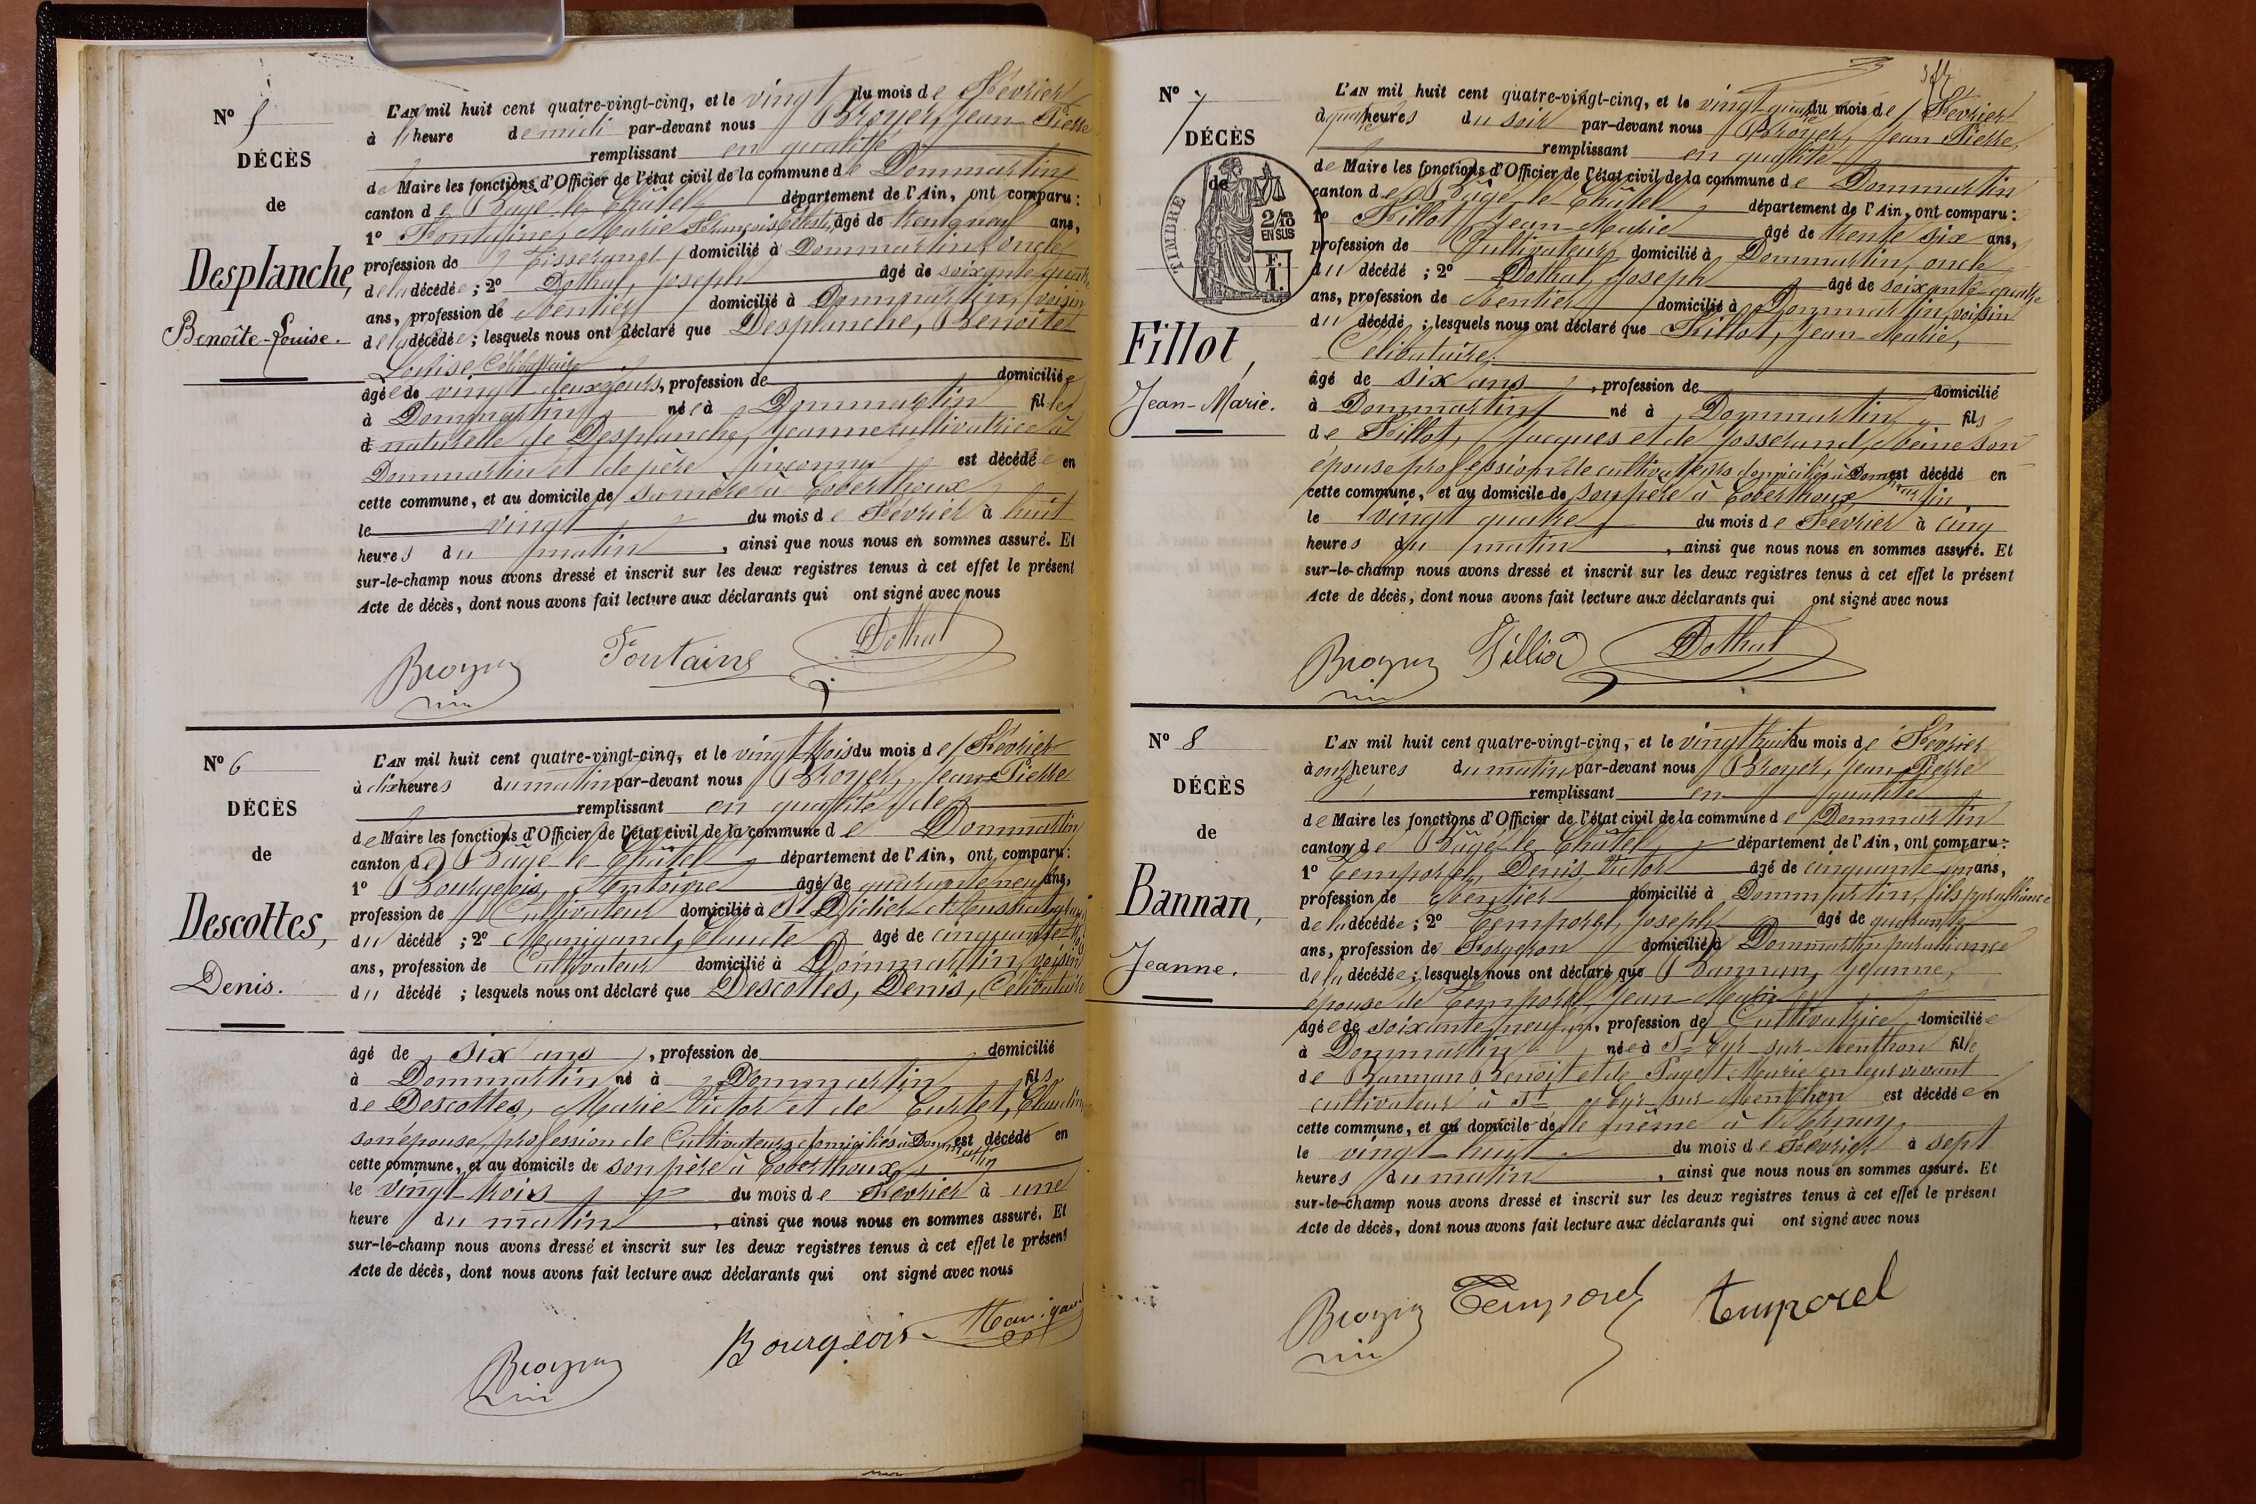 N° 5
DÉCÈS
de
Desplanche,
Benoîte-Louise.
L'AN mil huit cent quatre-vingt-cinq, et le vingt du mois de Février
à heure de midi par-devant nous Broyer, Jean Pierre
remplissant en qualité
de Maire les fonctions d'Officier de l'état civil de la commune de Dommartin
canton de Bâgé-le-Châtel département de l'Ain, ont comparu :
1° Fontaine, Marie François âgé de trente neuf ans,
profession de Tisserand domicilié à Dommartin, oncle
de la décédée ; 2° Dothal, Joseph âgé de soixante quatre
ans, profession de Rentier domicilié à Dommartin, voisin
de la décédée ; lesquels nous ont déclaré que Desplanche, Benoîte
Louise Célibataire
âgée de vingt deux jours, profession de domiciliée
à Dommartin née à Dommartin fille
naturelle de Desplanche, Jeanne cultivatrice à
Dommartin et de père inconnu est décédée en
cette commune, et au domicile de sa mère à Coberthoux
le vingt du mois de Février à huit
heures du matin, ainsi que nous nous en sommes assuré. Et
sur-le-champ nous avons dressé et inscrit sur les deux registres tenus à cet effet le présent
Acte de décès, dont nous avons fait lecture aux déclarants qui ont signé avec nous
Broyer Fontaine Dothal
N° 6
DÉCÈS
de
Descottes,
Denis.
L'AN mil huit cent quatre-vingt-cinq, et le vingt trois du mois de Février
à dix heures du matin par-devant nous Broyer, Jean Pierre
remplissant en qualité de
de Maire les fonctions d'Officier de l'état civil de la commune de Dommartin
canton de Bâgé-le-Châtel département de l'Ain, ont comparu :
1° Bourgeois, Antoine âgé de quarante neuf ans,
profession de Cultivateur domicilié à St Didier
du décédé ; 2° Manigand, Claude âgé de cinquante
ans, profession de Cultivateur domicilié à Dommartin, voisin
du décédé ; lesquels nous ont déclaré que Descottes, Denis, Célibataire
âgé de six ans, profession de domicilié
à Dommartin né à Dommartin fils
de Descottes, Marie Victor et de Curtet, Claudine
son épouse, profession de Cultivateurs domiciliés à Dommartin est décédé en
cette commune, et au domicile de son père à Coberthoux
le vingt trois du mois de Février à une
heure du matin, ainsi que nous nous en sommes assuré. Et
sur-le-champ nous avons dressé et inscrit sur les deux registres tenus à cet effet le présent
Acte de décès, dont nous avons fait lecture aux déclarants qui ont signé avec nous
Broyer Bourgeois Manigand
N° 7
DÉCÈS
de
TIMBRE
2/10
EN SUS
F.
1.
Fillot,
Jean-Marie.
L'AN mil huit cent quatre-vingt-cinq, et le vingt quatre du mois de Février
à quatre heures du soir par-devant nous Broyer, Jean Pierre,
remplissant en qualité
de Maire les fonctions d'Officier de l'état civil de la commune de Dommartin
canton de Bâgé-le-Châtel département de l'Ain, ont comparu :
1° Fillot Jean Marie âgé de trente six ans,
profession de Cultivateur domicilié à Dommartin, oncle
du décédé ; 2° Dothal, Joseph âgé de soixante-quatre
ans, profession de Rentier domicilié à Dommartin, voisin
du décédé ; lesquels nous ont déclaré que Fillot, Jean-Marie,
Célibataire,
âgé de six ans, profession de domicilié
à Dommartin né à Dommartin fils
de Fillot, Jacques et de Josserand, Reine son
épouse profession de cultivateurs domiciliés à Dommartin est décédé en
cette commune, et au domicile de son père à Coberthoux
le vingt quatre du mois de Février à cinq
heures du matin, ainsi que nous nous en sommes assuré. Et
sur-le-champ nous avons dressé et inscrit sur les deux registres tenus à cet effet le présent
Acte de décès, dont nous avons fait lecture aux déclarants qui ont signé avec nous
Broyer Fillot Dothal
N° 8
DÉCÈS
de
Bannan,
Jeanne.
L'AN mil huit cent quatre-vingt-cinq, et le vingt huit du mois de Février
à onze heures du matin par-devant nous Broyer, Jean Pierre
remplissant en qualité
de Maire les fonctions d'Officier de l'état civil de la commune de Dommartin
canton de Bâgé-le-Châtel département de l'Ain, ont comparu :
1° Temporel, Denis Victor âgé de cinquante un ans,
profession de Rentier domicilié à Dommartin, fils par alliance
de la décédée ; 2° Temporel, Joseph âgé de quarante
ans, profession de Forgeron domicilié à Dommartin par alliance
de la décédée ; lesquels nous ont déclaré que Bannan, Jeanne,
épouse de Temporel, Jean-Marie
âgée de soixante neuf ans, profession de Cultivatrice domiciliée
à Dommartin née à St Cyr sur Menthon fille
de Bannan Benoit et de Paget Marie en leur vivant
cultivateurs à St Cyr sur Menthon est décédée en
cette commune, et au domicile de le même à
le vingt-huit du mois de Février à sept
heures du matin, ainsi que nous nous en sommes assuré. Et
sur-le-champ nous avons dressé et inscrit sur les deux registres tenus à cet effet le présent
Acte de décès, dont nous avons fait lecture aux déclarants qui ont signé avec nous
Broyer Temporel Temporel